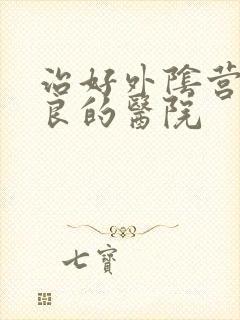 治好外陰营
良的醫院
七寶